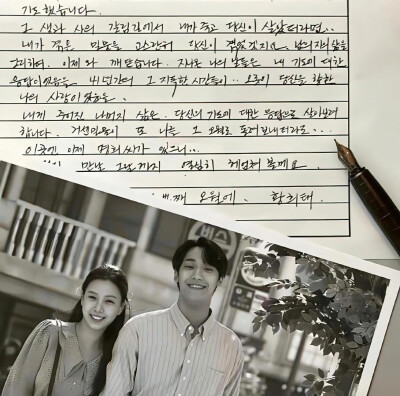 기도했습니다.
그 생과 사의 갈림길에서 내가 죽고 당신이 살았더라면..
내가 겪은 밀물을 고스란히 당신이 겪었겠지요. 남은 자의 삶을
이제 와 깨닫습니다. 지나온 나의 날들은 내 기도에 대한
응답이었음을. 41년간의 그 지독한 시간들이.. 오롯이 당신을 향한
나의 사랑이었음을..
내게 주어진 나머지 삶은. 당신의 기도에 대한 응답으로 살아보려
합니다. 거센 밀물이 또 나를 그 오월로 돌려 보내더라도...
이곳엔 이제 명희씨가 있으니..
만날 그날까지 열심히 헤엄쳐볼게요.
번째 오월에. 황희태
버스